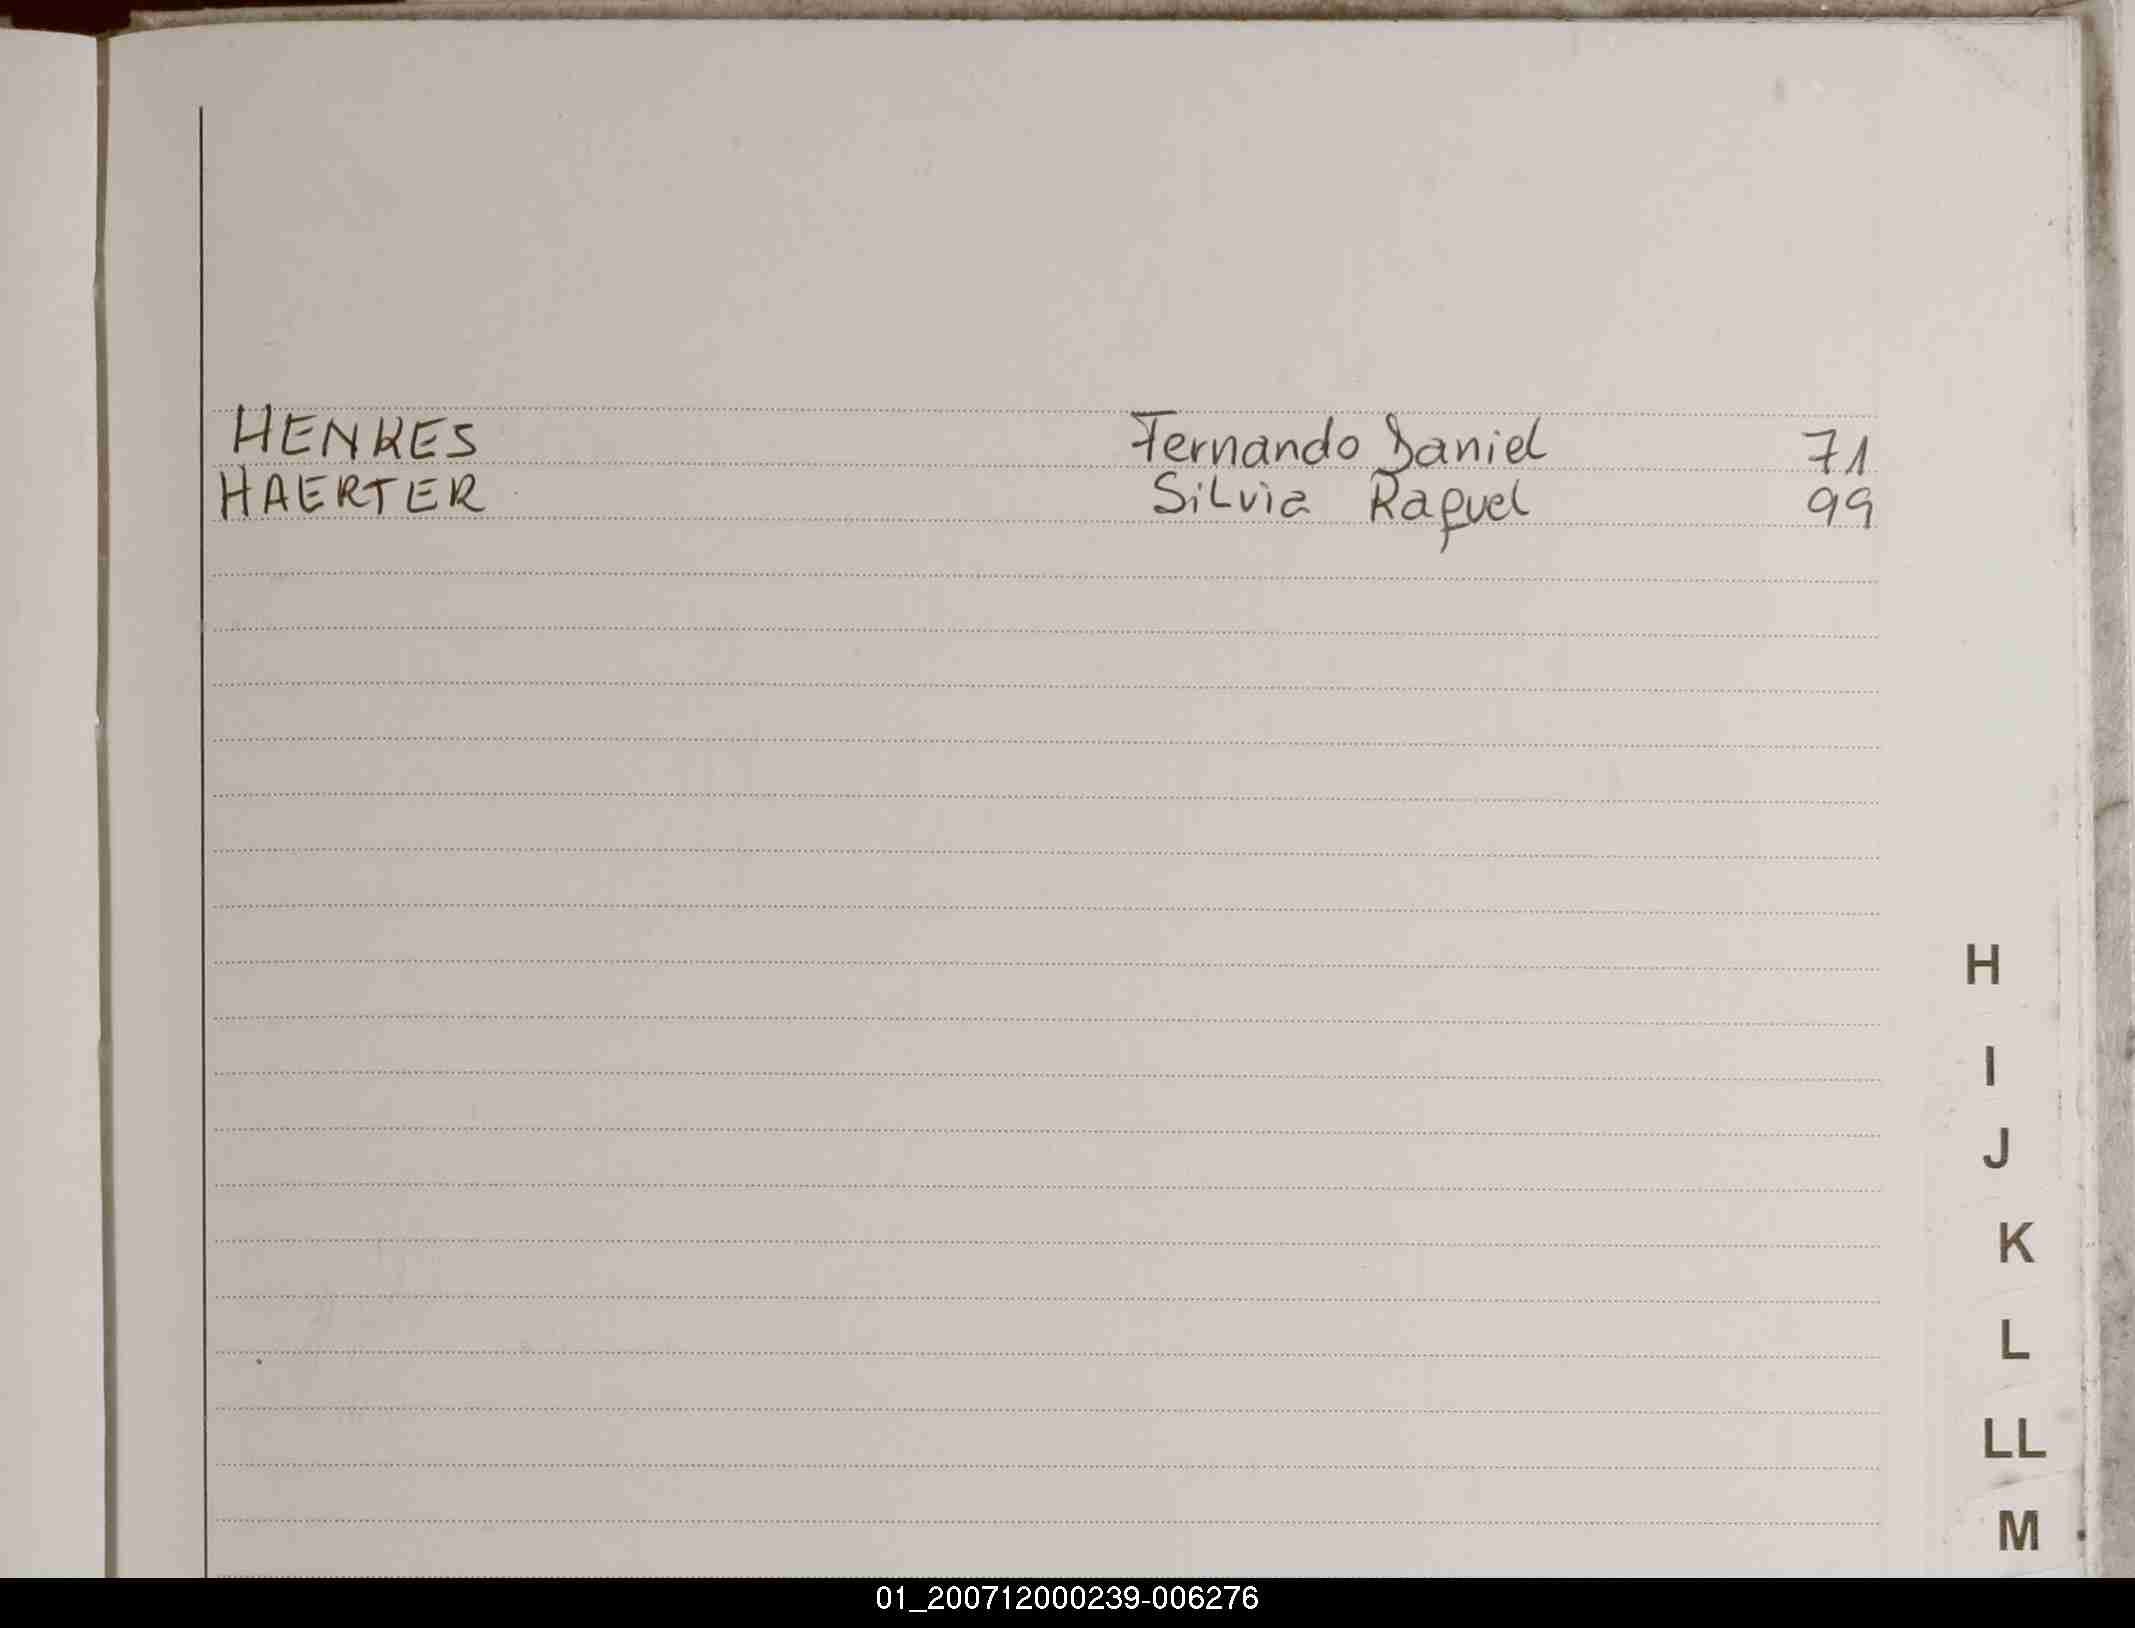 HENKES Fernando Daniel 71
HAERTER Silvia Raquel 99
H
I
J
K
L
LL
M
01_200712000239-006276